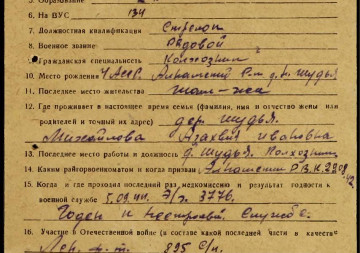 5. Образование
6. На ВУС 134
7. Должностная квалификация Стрелок
8. Военное звание Рядовой
9. Гражданская специальность Колхозник
10. Место рождения ЧАССР. Алнашский р-н д. Шудья
11. Последнее место жительства
12. Где проживает в настоящее время семья (фамилия, имя и отчество жены или
родителей и точный их адрес) дер. Шудья.
Михайлова Ивановна
13. Последнее место работы и должность д. Шудья. Колхозник
14. Каким райгорвоенкоматом и когда призван Алнашский РВК
15. Когда и где проходил последний раз медкомиссию и результат годности к
военной службе 5.09.44. Э/г 3776.
Годен к нестроевой службе.
16. Участие в Отечественной войне (в составе какой последней части и в качестве
Лен. фр. 895 с/п.